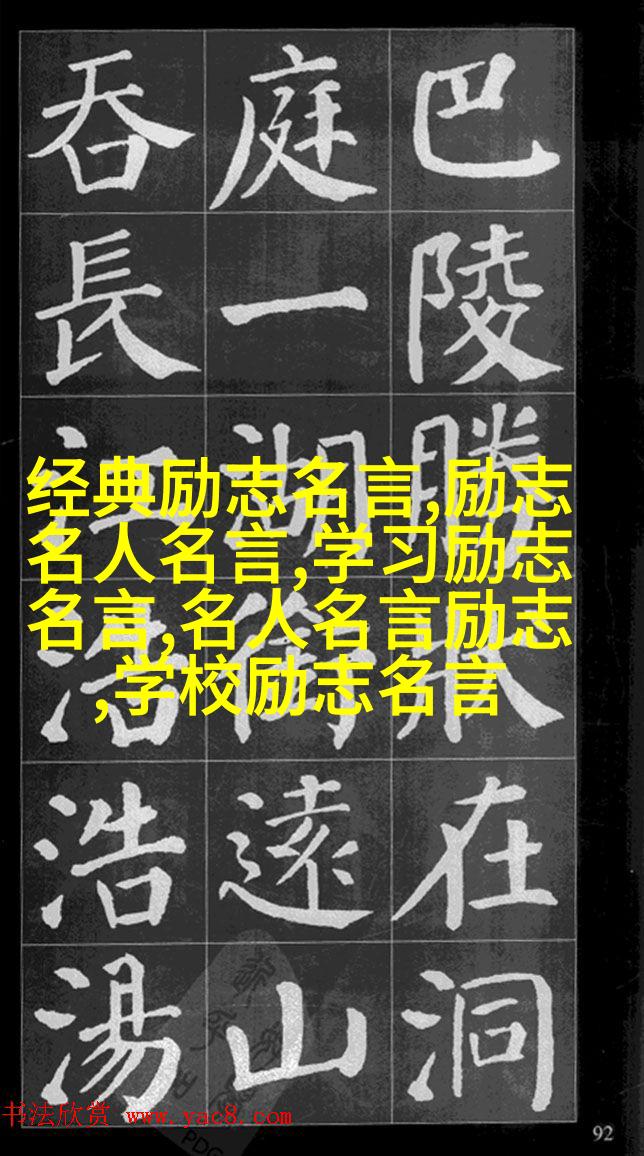 巴陵勝狀在洞
庭一湖銜遠山
吞長江浩浩湯
经典励志名言,励志
名人名言,学习励志
名言,名人名言励志
,学校励志名言
书法欣赏 www.yac8.com
PDG
92